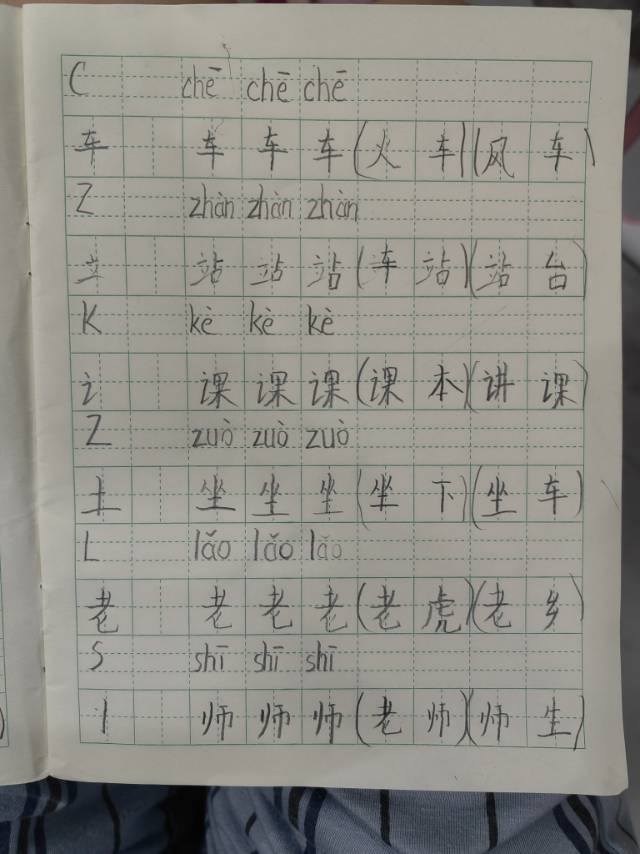 C chē chē chē
车 车 车 车 (火车) (风车)
Z zhàn zhàn zhàn
立 站 站 站 (车站) (站台)
K kè kè kè
讠 课 课 课 (课本) (讲课)
Z zuò zuò zuò
土 坐 坐 坐 (坐下) (坐车)
L lǎo lǎo lǎo
老 老 老 老 (老虎) (老乡)
S shī shī shī
丨 师 师 师 (老师) (师生)